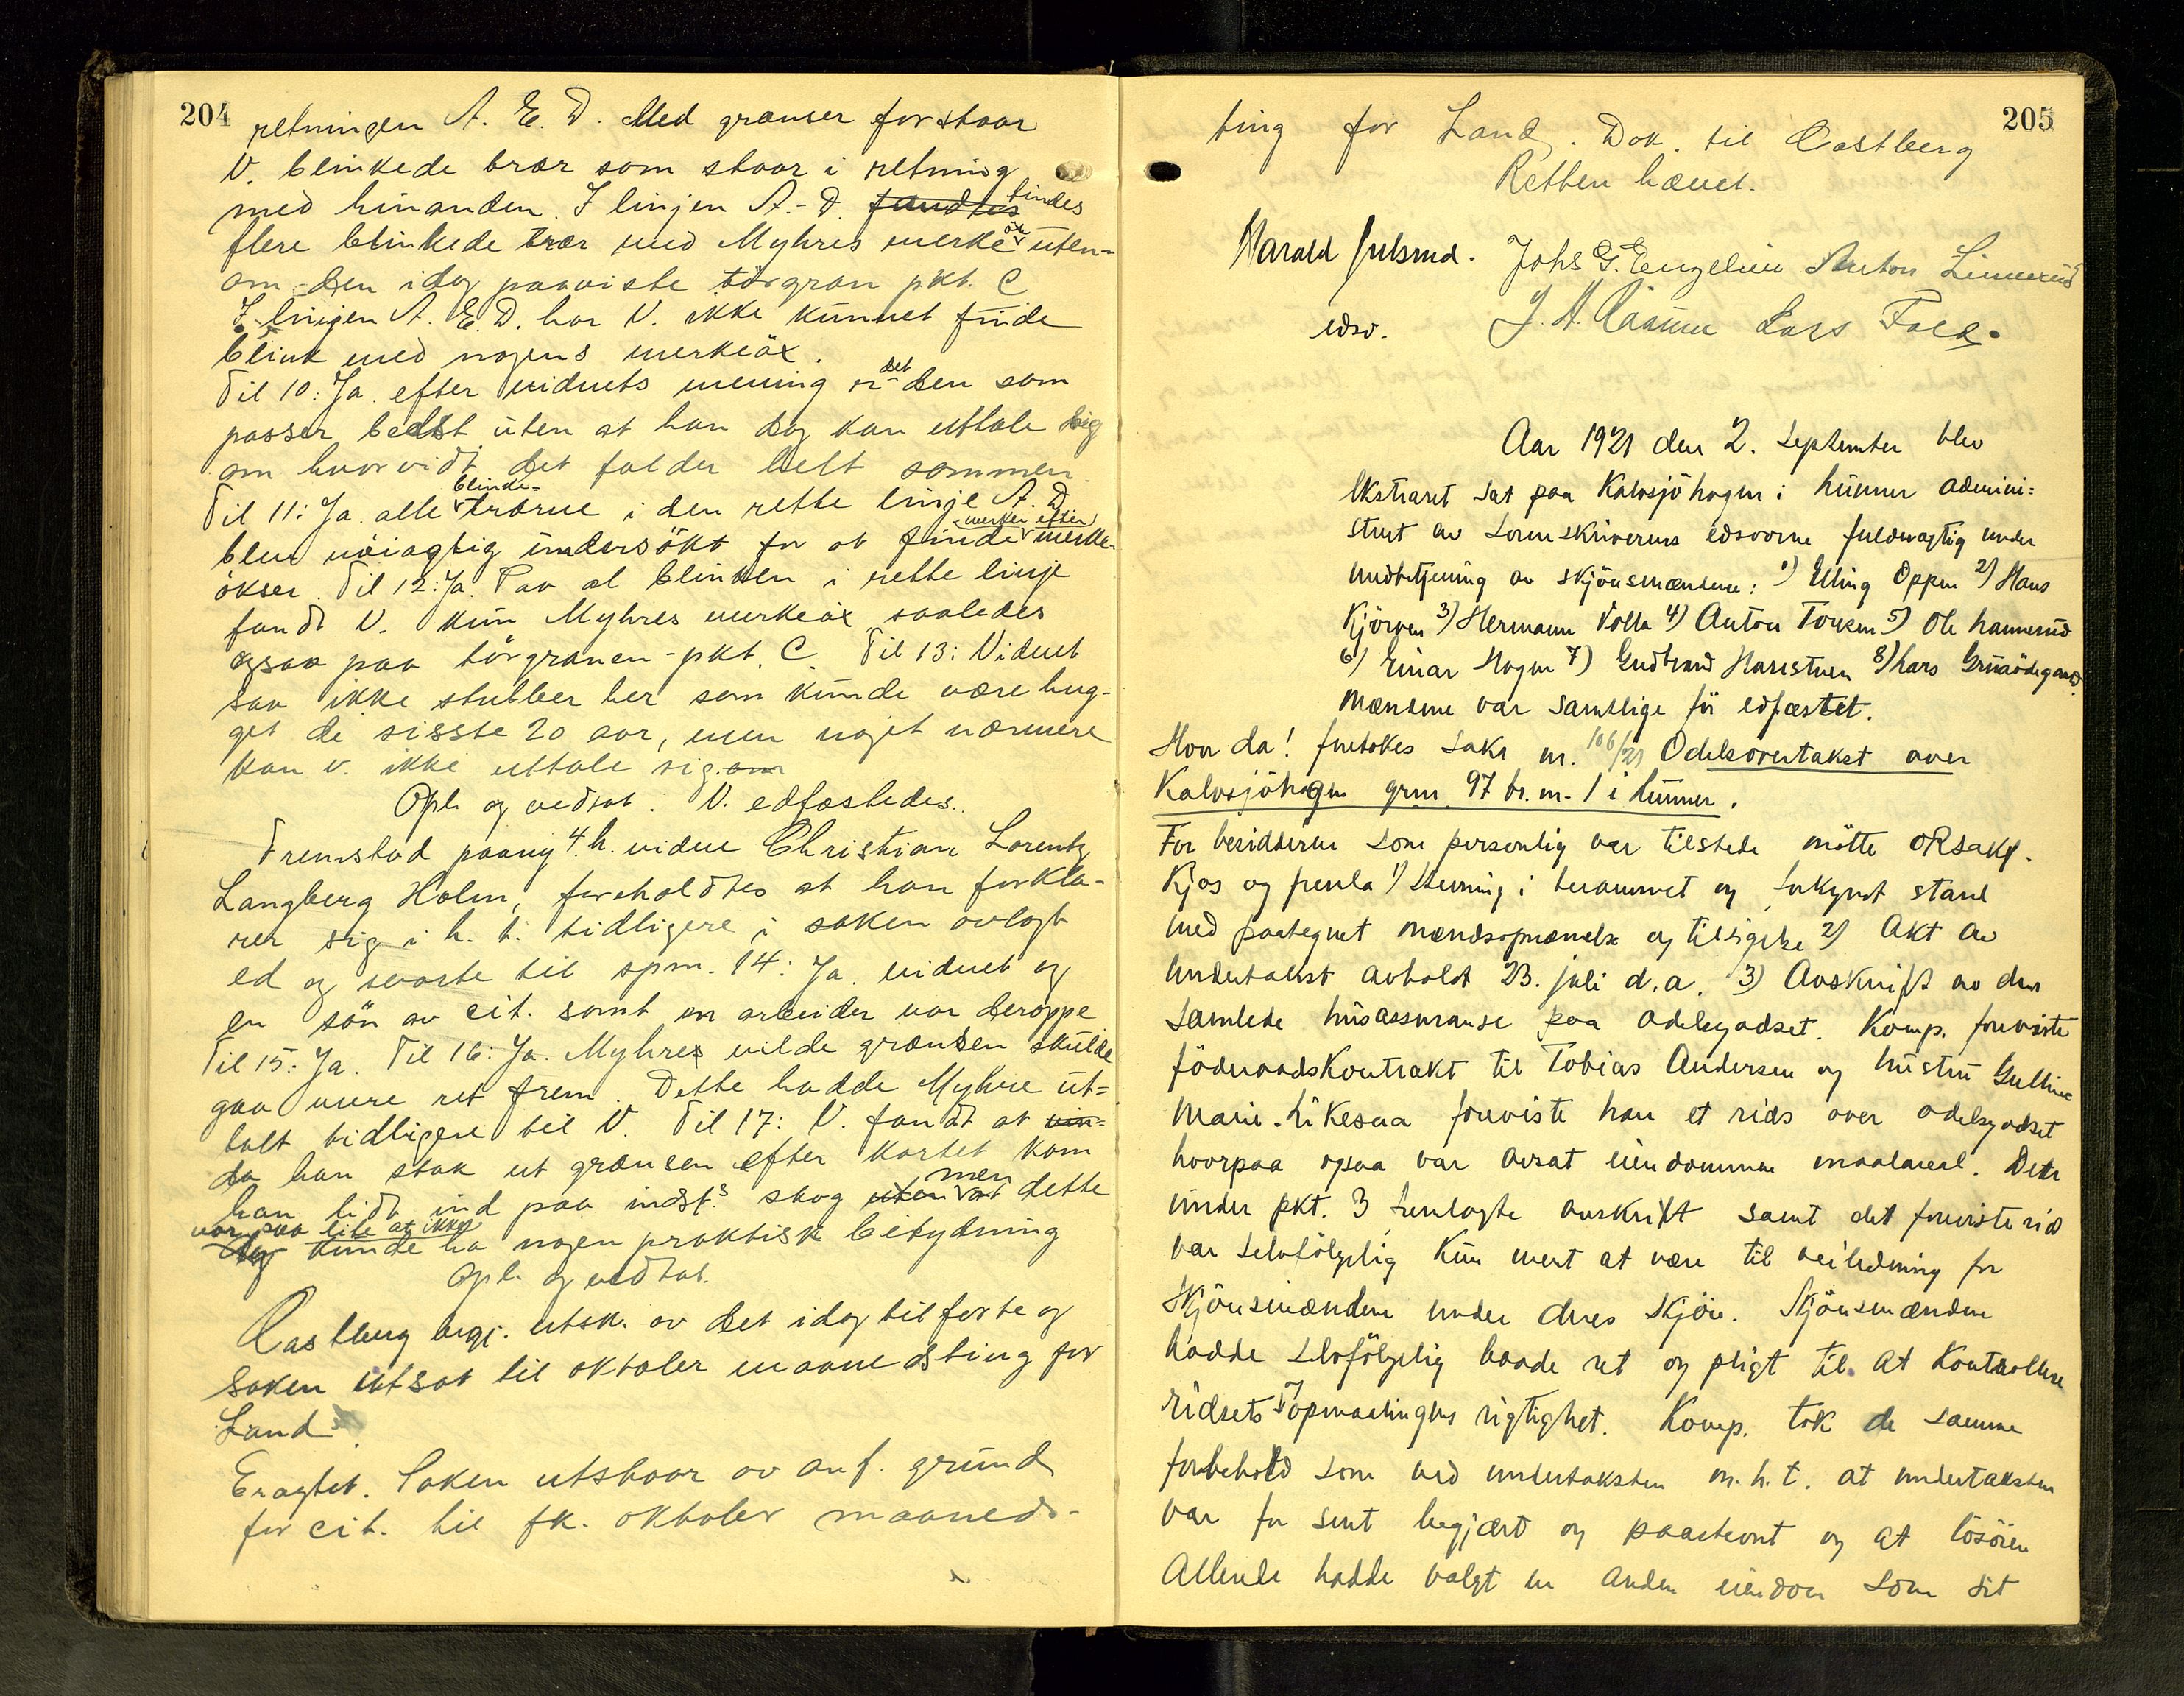 204
retningen A. E. D. Med grænser forstaar
V. blinkede trær som staar i retning
med hinanden. I linjen A.-D. fandtes findes
flere blinkede trær med Myhres merkeöx uten-
om den idag paaviste törgran pkt. C
I linjen A. E. D. har V. ikke kunnet finde
blink med nogens merkeöx.
Til 10: Ja. efter vidnets mening er det den som
passer bedst uten at han dog kan uttale sig
om hvorvidt det falder helt sammen.
Til 11: Ja. alle blinke-trærne i den rette linje A. D
blev nöiagtig undersökt for at finde merker efter merke-
ökser. Til 12: Ja. Paa al blinken i rette linje
fandt V. kun Myhres merkeöx saaledes
ogsaa paa törgranen - pkt. C. Til 13: Vidnet
saa ikke stubber her som kunde være hug-
get de sisste 20 aar, men noget nærmere
kan V. ikke uttale sig. om
Opl. og vedtat. V. edfæstedes.
Fremstod paany 4. h. vidne Christian Lorentz
Langberg Holm, foreholdtes at han forkla-
rer sig i h. t. tidligere i saken avlagt
ed og svarte til spm. 14: Ja. vidnet og
en sön av cit. samt en arbeider var deroppe
Til 15: Ja. Til 16: Ja. Myhres vilde grænsen skulde
gaa mere ret frem. Dette hadde Myhre ut-
talt tidligere til V. Til 17: V. fandt at
da han stak ut grænsen efter kartet kom
han lidt ind paa indst.s skog uten at men dette
var saa lite at ikke
kunde ha nogen praktisk betydning
Opl. og vedtat.
Castberg begj. utsk. av det idag tilförte og
saken utsat til oktober maanedsting for
Land.
Eragtet. Saken utstaar av anf. grund
for cit. til fk. oktober maaneds-
205
ting for Land. Dok. til Castberg
Retten hævet.
Harald Julsrud. Johs G. Engelien Anton Linnerud
edsv. Lars Falk.
Aar 1921 den 2. September blev
ekstraret sat paa Kalvsjöhagen i Lunner admini-
strert av sorenskriverens edsvorne fuldmægtig under
medbetjening av skjönsmændene: 1) Elling Oppen 2) Hans
Kjörven 3) Hermann Volla 4) Anton Torken 5) Ole Hammerud
6) Einar Hagen 7) Gudbrand Haristuen 8) Lars Gruaödegaard.
Mændene var samtlige för edfæstet.
Hvor da! foretokes sak nr. 106/21 Odelsovertakst over
Kalvsjöhagen grnr. 97 br. nr. 1 i Lunner.
For besidderen som personlig var tilstede mötte ORsakf.
Kjos og fremla 1) Stevning i berammet og forkyndt stand
med paategnet mændsopnævnelse og tilsigelse 2) Akt av
undertakst avholdt 23. juli d. a. 3) Avskrift av den
samlede husassuranse paa odelsgodset. Komp. foreviste
föderaadskontrakt til Tobias Andersen og hustru Gulline
Marie. Likesaa foreviste han et rids over odelsgodset
hvorpaa ogsaa var avsat eiendommens maalareal. Den
under pkt. 3 fremlagte avskrift samt det foreviste rids
var selvfölgelig kun ment at være til veiledning for
skjönsmændene under deres skjön. Skjönsmændene
hadde selvfölgelig baade ret og pligt til at kontrollere
ridsets og opmaalingens rigtighet. Komp. tok de samme
forbehold som ved undertaksten m. h. t. at undertaksten
var for sent begjært og paastevnt og at lösören
Allerede hadde valgt en anden eiendom som sit